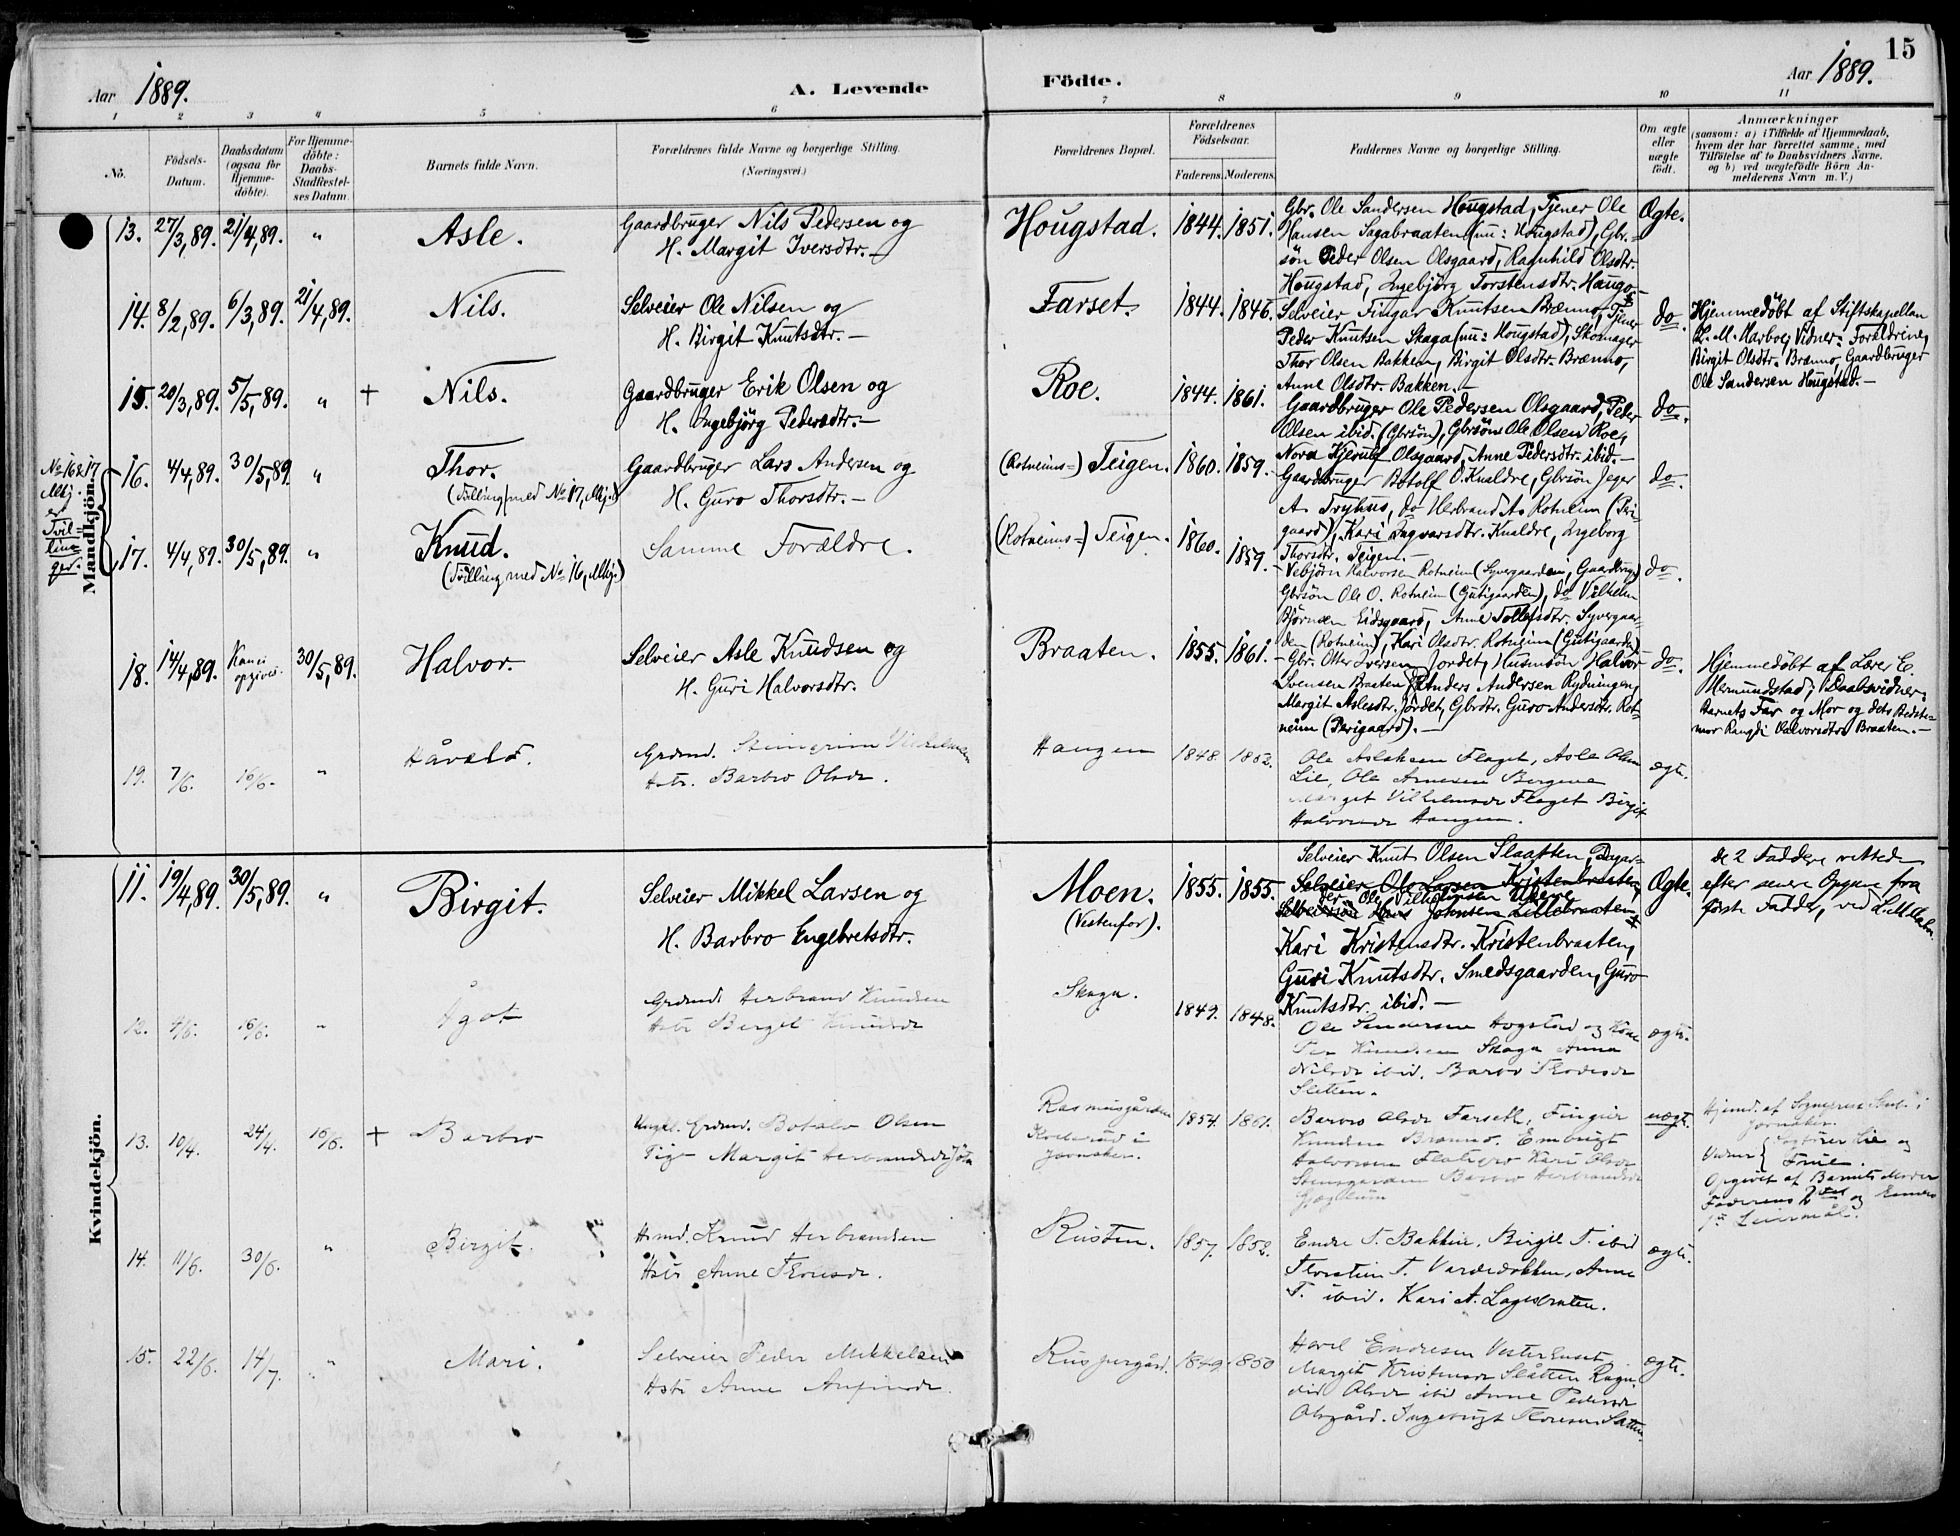 15
Aar 1889.
A. Levende Födte.
Aar 1889.
1 2 3 4 5 6 7 8 9 10 11
No.
Födsels-Datum.
Daabsdatum (ogsaa for Hjemme-döbte).
For Hjemme-döbte: Daabs-Stadfæstel-ses Datum.
Barnets fulde Navn.
Forældrenes fulde Navne og borgerlige Stilling. (Næringsvei.)
Forældrenes Bopæl.
Forældrenes Födselsaar.
Faderens. Moderens.
Faddernes Navne og borgerlige Stilling.
Om ægte eller uægte födt.
Anmærkninger
(saasom: a) i Tilfælde af Hjemmedaab,
hvem der har forrettet samme, med
Tilföielse af to Daabsvidners Navne,
og b) ved uægtefödte Börn An-
melderens Navn m. V.)
Mandkjön.
No 16 & 17
Mkj.
er
Tvil-
lin-
ger.
13. 27/3, 89. 21/4, 89. " Asle.
Gaardbruger Nils Pedersen og
H. Margit Iversdtr. —
Hougstad. 1844. 1851.
Gbr. Ole Sandersen Hougstad, Tjener Ole
Hansen Sagabraaten (nu: Hougstad), Gbr.-
sön Peder Olsen Olsgaard, Ragnhild Olsdtr.
Hougstad, Ingebjörg Torstensdtr. Haugo
Ægte.
14. 8/2, 89. 6/3, 89. 21/4, 89. Nils.
Selveier Ole Nilsen og
H. Birgit Knutsdtr. —
Farset. 1844. 1846.
Selveier Fingar Knutsen Brænno, Tjener
Peder Knutsen Skaga (nu: Hougstad), Skomager
Thor Olsen Bakken, Birgit Olsdtr. Brænno,
Anne Olsdtr. Bakken. —
do.
Hjemmedöbt af Stiftskapellan
L. M. Harboe; Vidner: Forældrene,
Birgit Olsdtr. Brænno, Gaardbruger
Ole Sandersen Hougstad. —
15. 20/3, 89. 5/5, 89. " + Nils.
Gaardbruger Erik Olsen og
H. Ingebjörg Pedersdtr. —
Roe. 1844. 1861.
Gaardbruger Ole Pedersen Olsgaard, Peder
Olsen ibid. (Gbrsön), Gbrsön Ole Olsen Roe,
Nora Kjerulf Olsgaard, Anne Pedersdtr. ibid. —
do.
16. 4/4, 89. 30/5, 89. " Thor.
(Tvilling med No 17, Mkj.)
Gaardbruger Lars Andersen og
H. Guro Thorsdtr. —
(Rotneims=) Teigen. 1860. 1859.
Gaardbruger Botolf O. Kualdre, Gbrsön Jeger
A. Tryhus, do Herbrand A. Rotneim (Peri-
gaard), Kari Ingvarsdtr. Kualdre, Ingeborg
Thorsdtr. Teigen. —
do.
17. 4/4, 89. 30/5, 89. " Knud.
(Tvilling med No 16, Mkj.)
Samme Forældre.
(Rotneims=) Teigen. 1860. 1859.
Vebjörn Halvorsen Rotneim (Syvergaarden), Gaardbruger
Gbrsön Ole O. Rotneim (Gutigaarden), do Vilhelm
Björnsen Eidsgaard, Anne Tollefsdtr. Syvergaar-
den (Rotneim), Kari Olsdtr. Rotneim (Gutigaarden)
do.
18. 14/4, 89. Kan ei opgives. 30/5, 89. Halvor.
Selveier Asle Knudsen og
H. Guri Halvorsdtr.
Braaten. 1855. 1861.
Gbr. Otter Iversen Jordet, Husmdsön Halvor
Svensen Braaten, Anders Andersen Rydningen,
Margit Aslesdtr. Jordet, Gbrdtr. Guro Andersdtr. Rot-
neim (Perigaard). —
do.
Hjemmedöbt af Lærer E.
Hermundstad; Daabsvidner:
Barnets Far og Mor og dets Bedste-
mor Rangdi Halvorsdtr. Braaten. —
19. 7/6. 16/6. " Håvald.
Grdmd. Steingrim Vilhelmsen
Hstr. Barbro Olsdr.
Haugen 1848. 1852.
Ole Aslaksen Flaget, Asle Olsen
Lie, Ole Arnesen Bergene
Marget Vilhelmsdr Flaget Birgit
Halvorsdr Haugen.
ægte.
Kvindekjön.
11. 19/4, 89. 30/5, 89. " Birgit.
Selveier Mikkel Larsen og
H. Barbro Engebretsdtr.
Moen. (Vestenfor). 1855. 1855.
Selveier Knut Olsen Slaatten,
Selveier Ole Larsen Kristenbraaten,
Ole Vilhelmsen
Selveiersön Hans Johnsen Lillebraaten
Kari Kristensdtr. Kristenbraaten,
Guri Knutsdtr. Smedsgaarden, Guro
Knutsdtr. ibid. —
Ægte.
De 2 Faddere rettede
efter senere Opgave fra
förste Fadder, ved
12. 4/6. 16/6. " Ågot
Grdmd. Herbrand Knudsen
Hstr Berget Knudsdr
Skaga. 1849. 1848.
Ole Sandersen Hogstad og Kone
Per Knudsen Skaga Anna
Nilsdr ibid. Barbo Thoresdr
Sletten.
ægte.
13. 10/4. 24/4. 16/6. + Barbro
Ungk. Grdmd. Botolv Olsen
Pige Margit Herbrandsdr
Rasmusgården
i
Jevnaker.
1854. 1861.
Barbro Olsdr Farseth, Fingar
Knudsen Brænno, Embrigt
Halvorsen Kari Olsdr
Stensgarden Barbro Herbrandsdr
uægte.
Hjemd. af i
Jevnaker.
Vidner { Lie og
Frue.
Opgivet af Barnets Moder
Faderens 2det og Hendes
1ste Leiermål.
14. 11/6. 30/6. " Birgit.
Hsmd. Knud Herbrandsen
Hstr Anne Thoresdr.
Rusten. 1857. 1852.
Endre T. Bakken, Birgit T. ibid
Thorstein T. Vardedokken, Anne
T. ibid. Kari A. Lagesbraten.
ægte.
15. 22/6. 14/7. " Mari.
Selveier Peder Mikkelsen
Hstr Anne Anfinsdr.
Ruspergård. 1849. 1850
Havel Endresen Vesterenset
Margit Kristensdr Slåtten Ragn-
did Olsdr ibid Anne Pedersdr
Olsgård. Ingebrigt Thoresen Satten.
ægte.